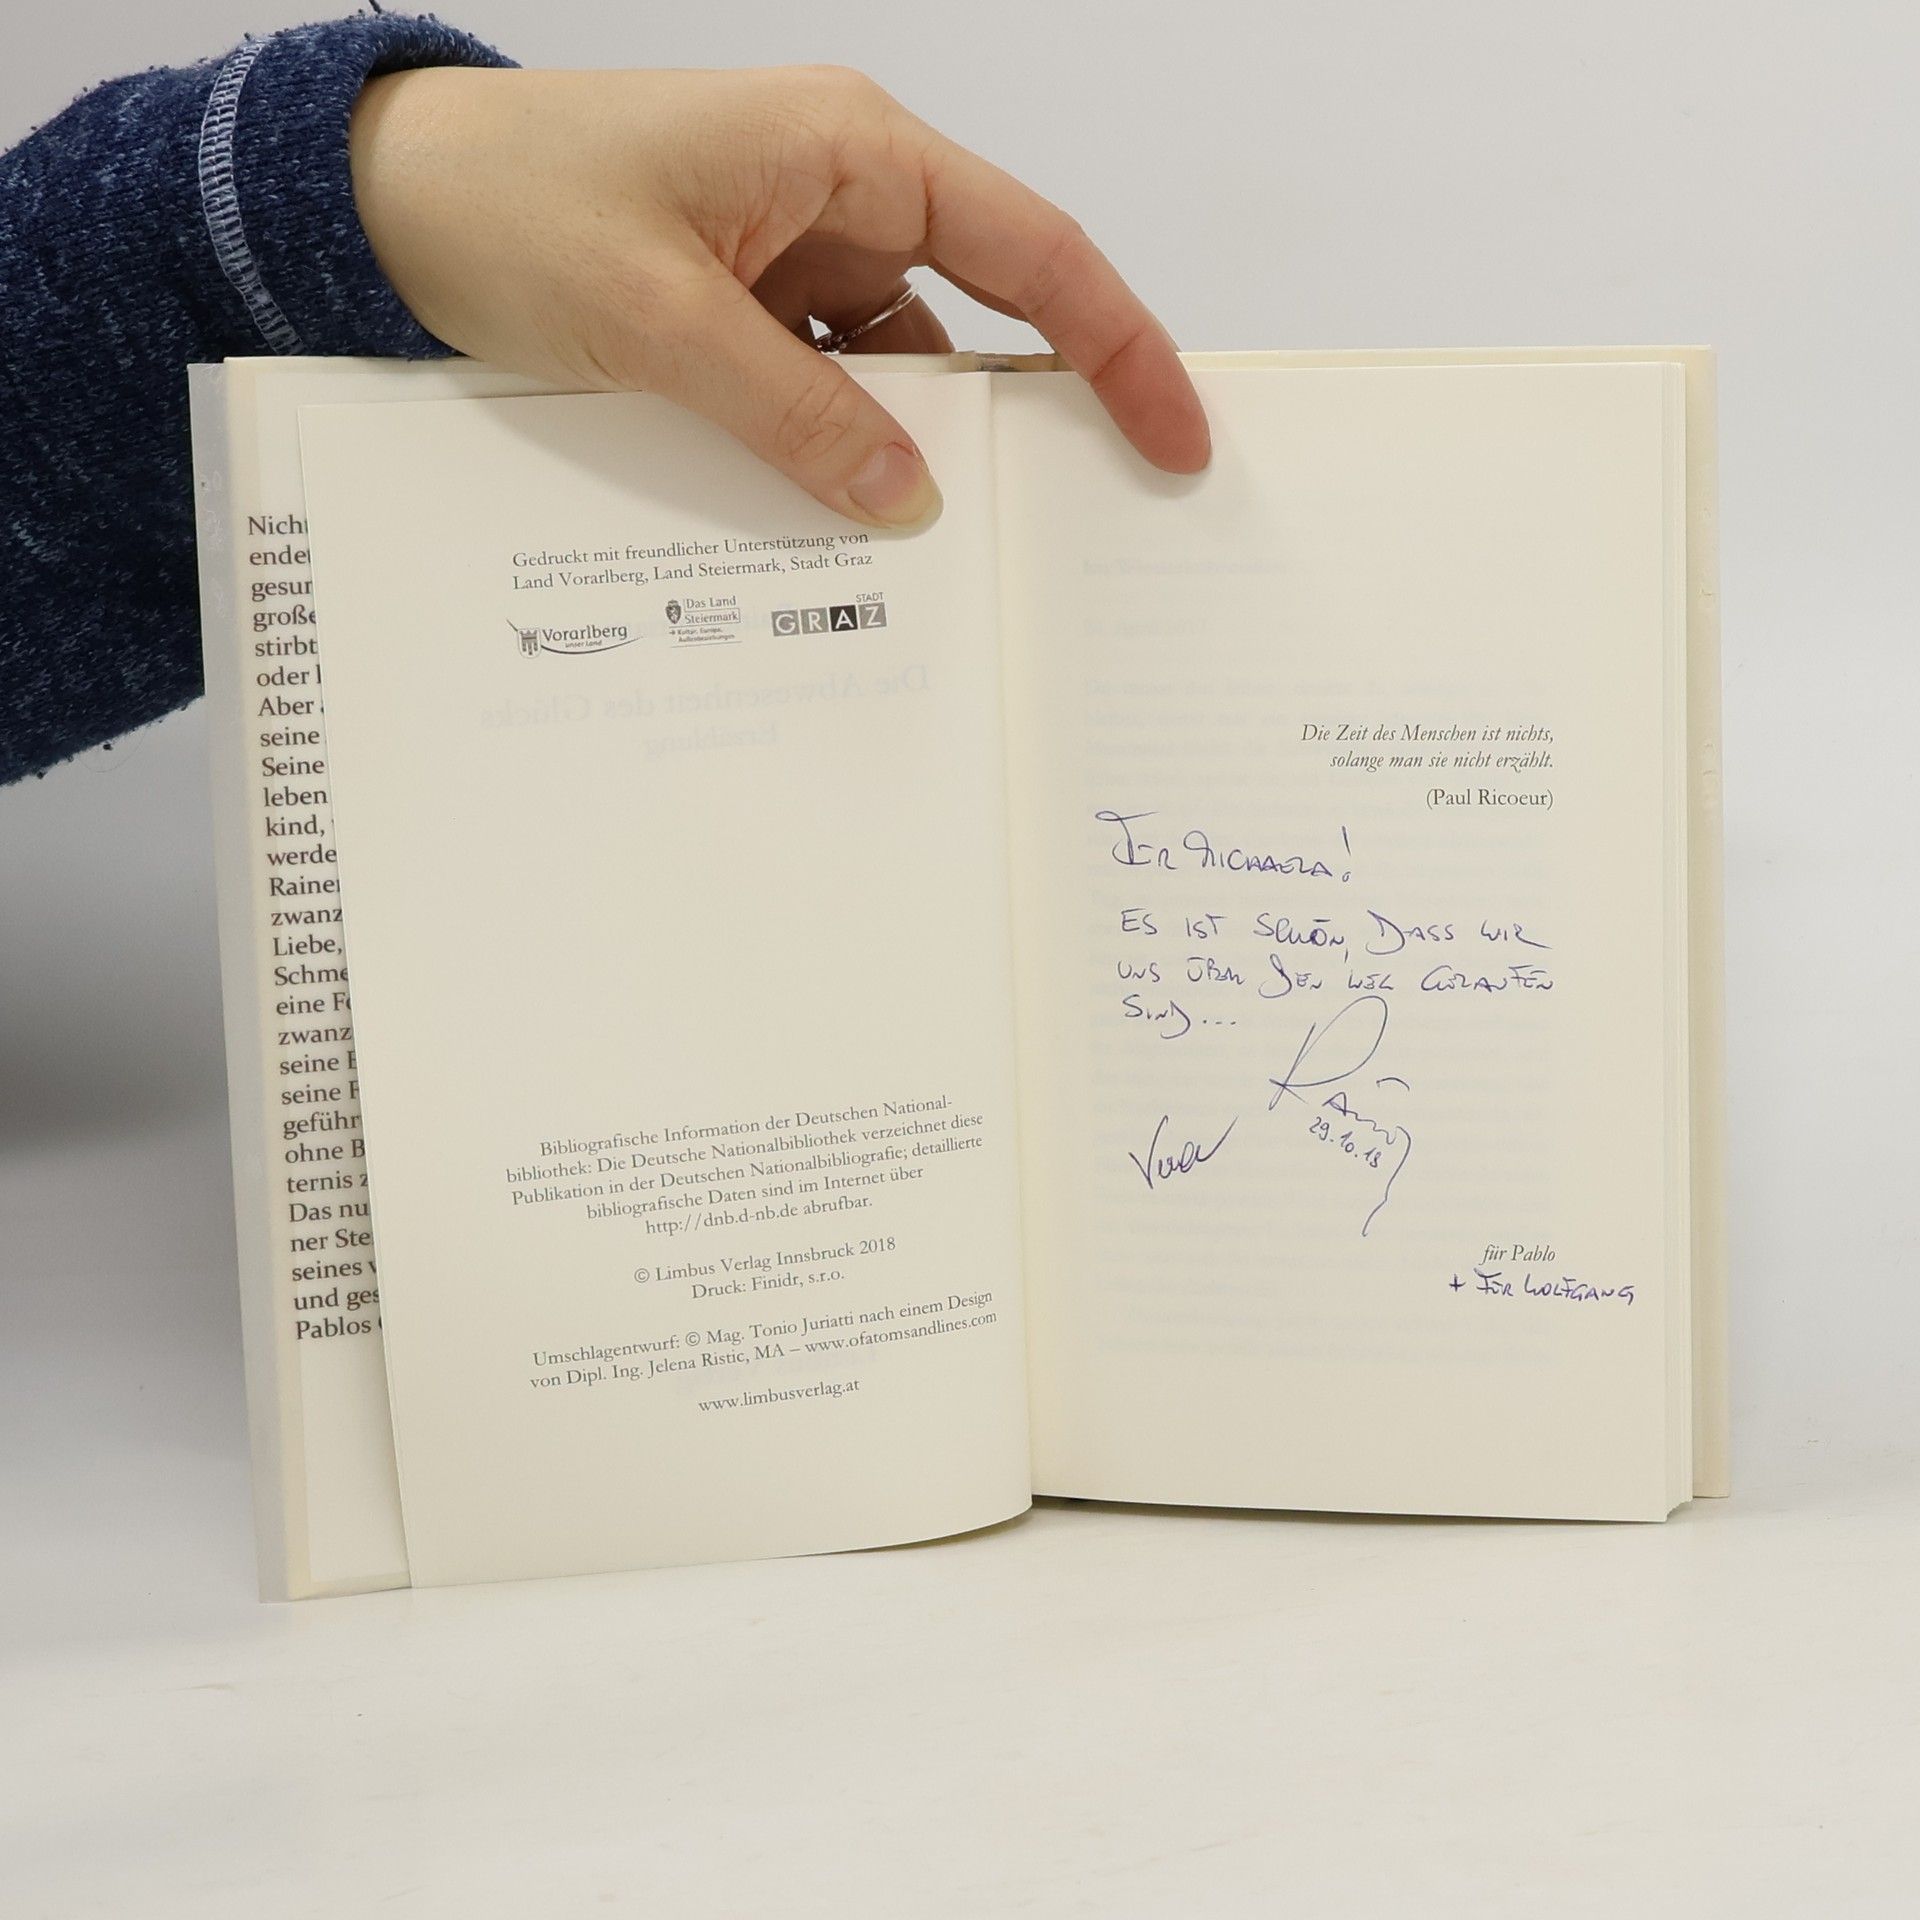 Nich
endet
gesun
große
stirbt
oder
Aber
seine
Seine
leben
kind,
werde
Rainer
zwanz
Liebe,
Schme
eine Fo
zwanz
seine E
seine F
geführ
ohne B
ternis z
Das nu
ner Ste
seines v
und ges
Pablos
Gedruckt mit freundlicher Unterstützung von
Land Vorarlberg, Land Steiermark, Stadt Graz
Vorarlberg
unser Land
Das Land
Steiermark
Kultur, Europa,
Außenbeziehungen
STADT
GRAZ
Die Abwesenheit des Glücks
Erzählung
Bibliografische Information der Deutschen National-
bibliothek: Die Deutsche Nationalbibliothek verzeichnet diese
Publikation in der Deutschen Nationalbibliografie; detaillierte
bibliografische Daten sind im Internet über
http://dnb.d-nb.de abrufbar.
© Limbus Verlag Innsbruck 2018
Druck: Finidr, s.r.o.
Umschlagentwurf: © Mag. Tonio Juriatti nach einem Design
von Dipl. Ing. Jelena Ristic, MA – www.ofatomsandlines.com
www.limbusverlag.at
Die Zeit des Menschen ist nichts,
solange man sie nicht erzählt.
(Paul Ricoeur)
FÜR MICHAELA!
ES IST SCHÖN, DASS WIR
UNS ÜBER DEN WEG GELAUFEN
SIND...
29.10.18
für Pablo
+ FÜR WOLFGANG